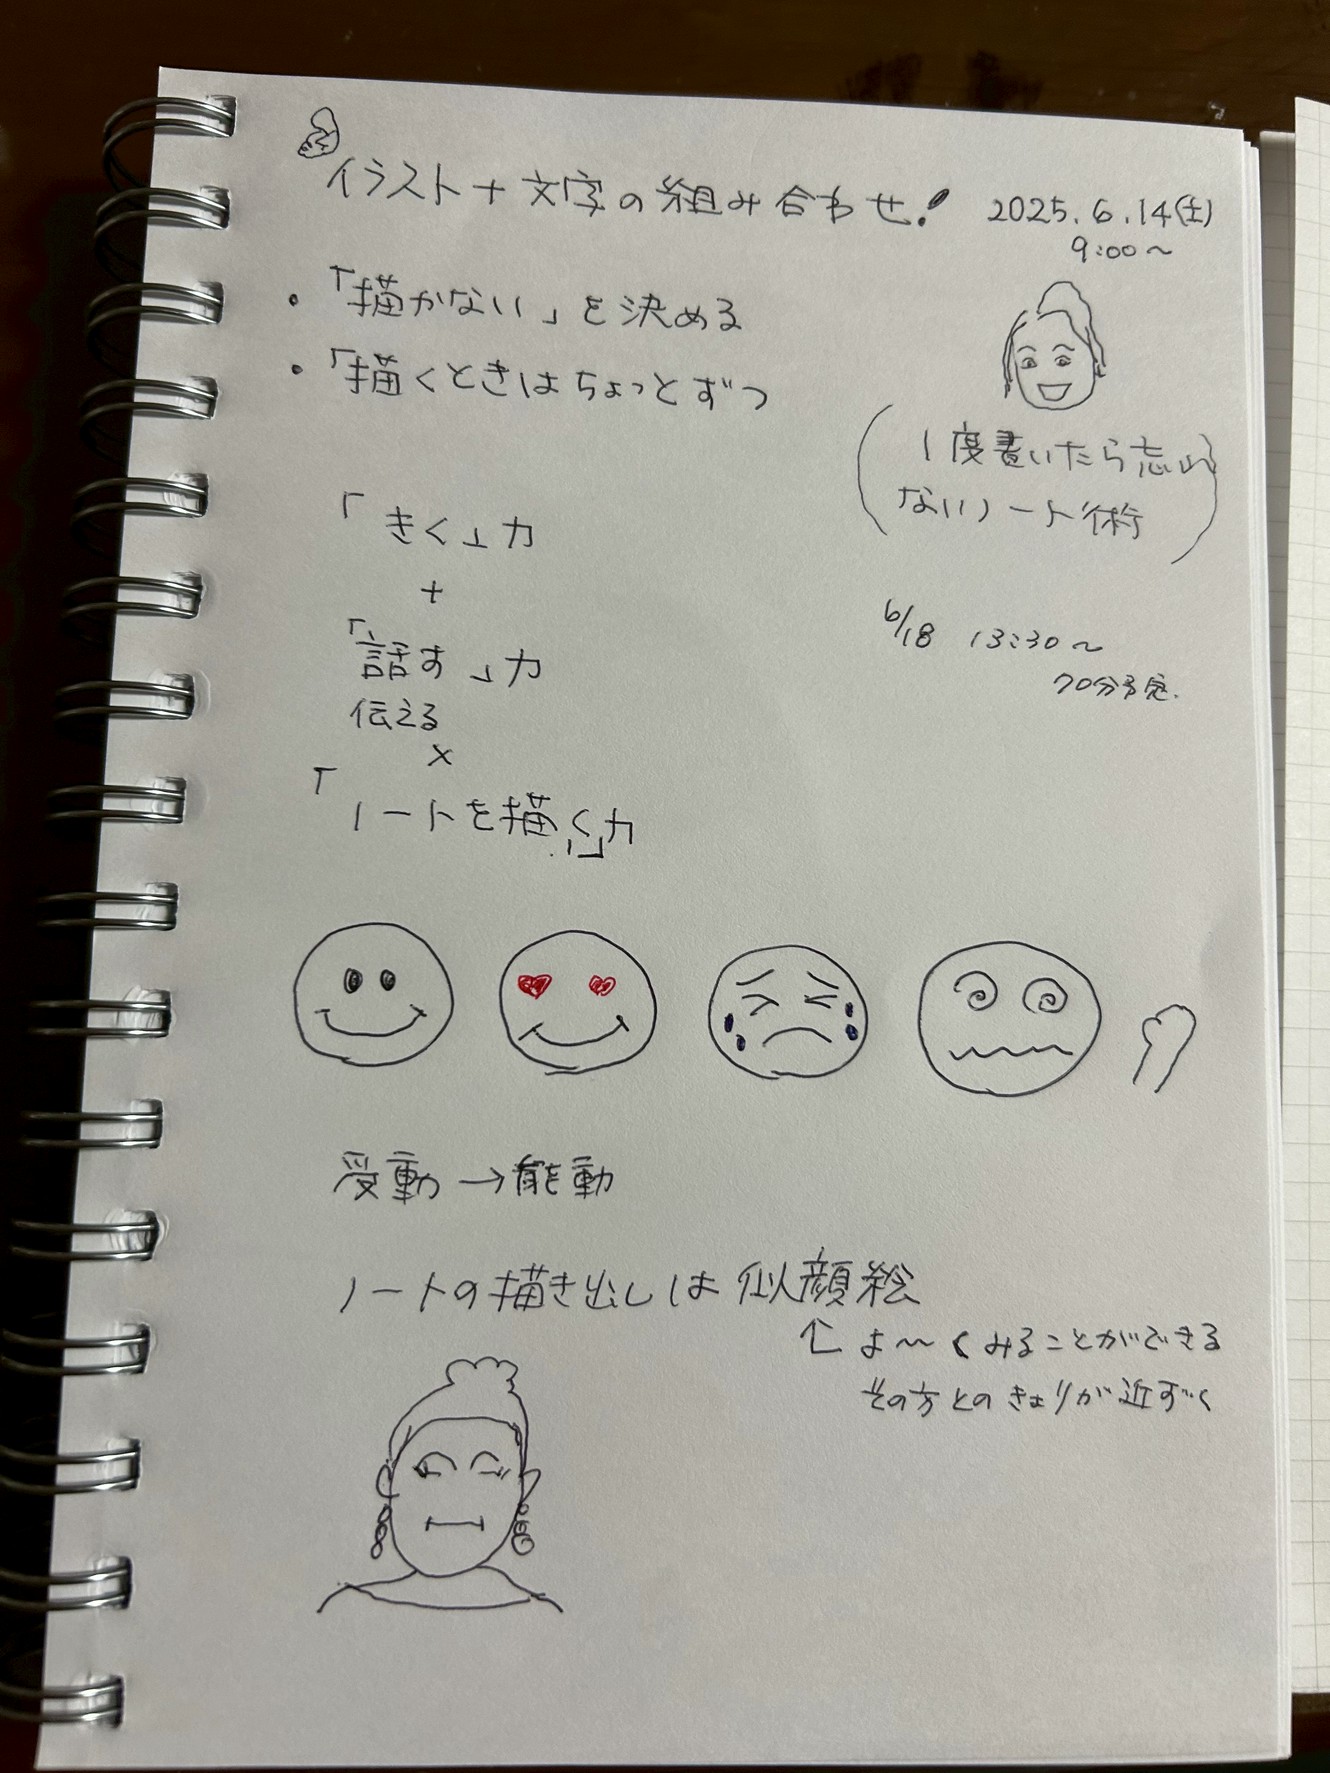 イラスト+文字の組み合わせ!
2025.6.14(土)
9:00~
・「描かない」を決める
・「描くときはちょっとずつ
(1度書いたら忘れ
ないノート術)
「きく」力
+
「話す」力
伝える
×
「ノートを描く」力
6/18 13:30~
70分予定.
受動→能動
ノートの描き出しは似顔絵
↑よ~くみることができる
その方とのきょりが近ずく